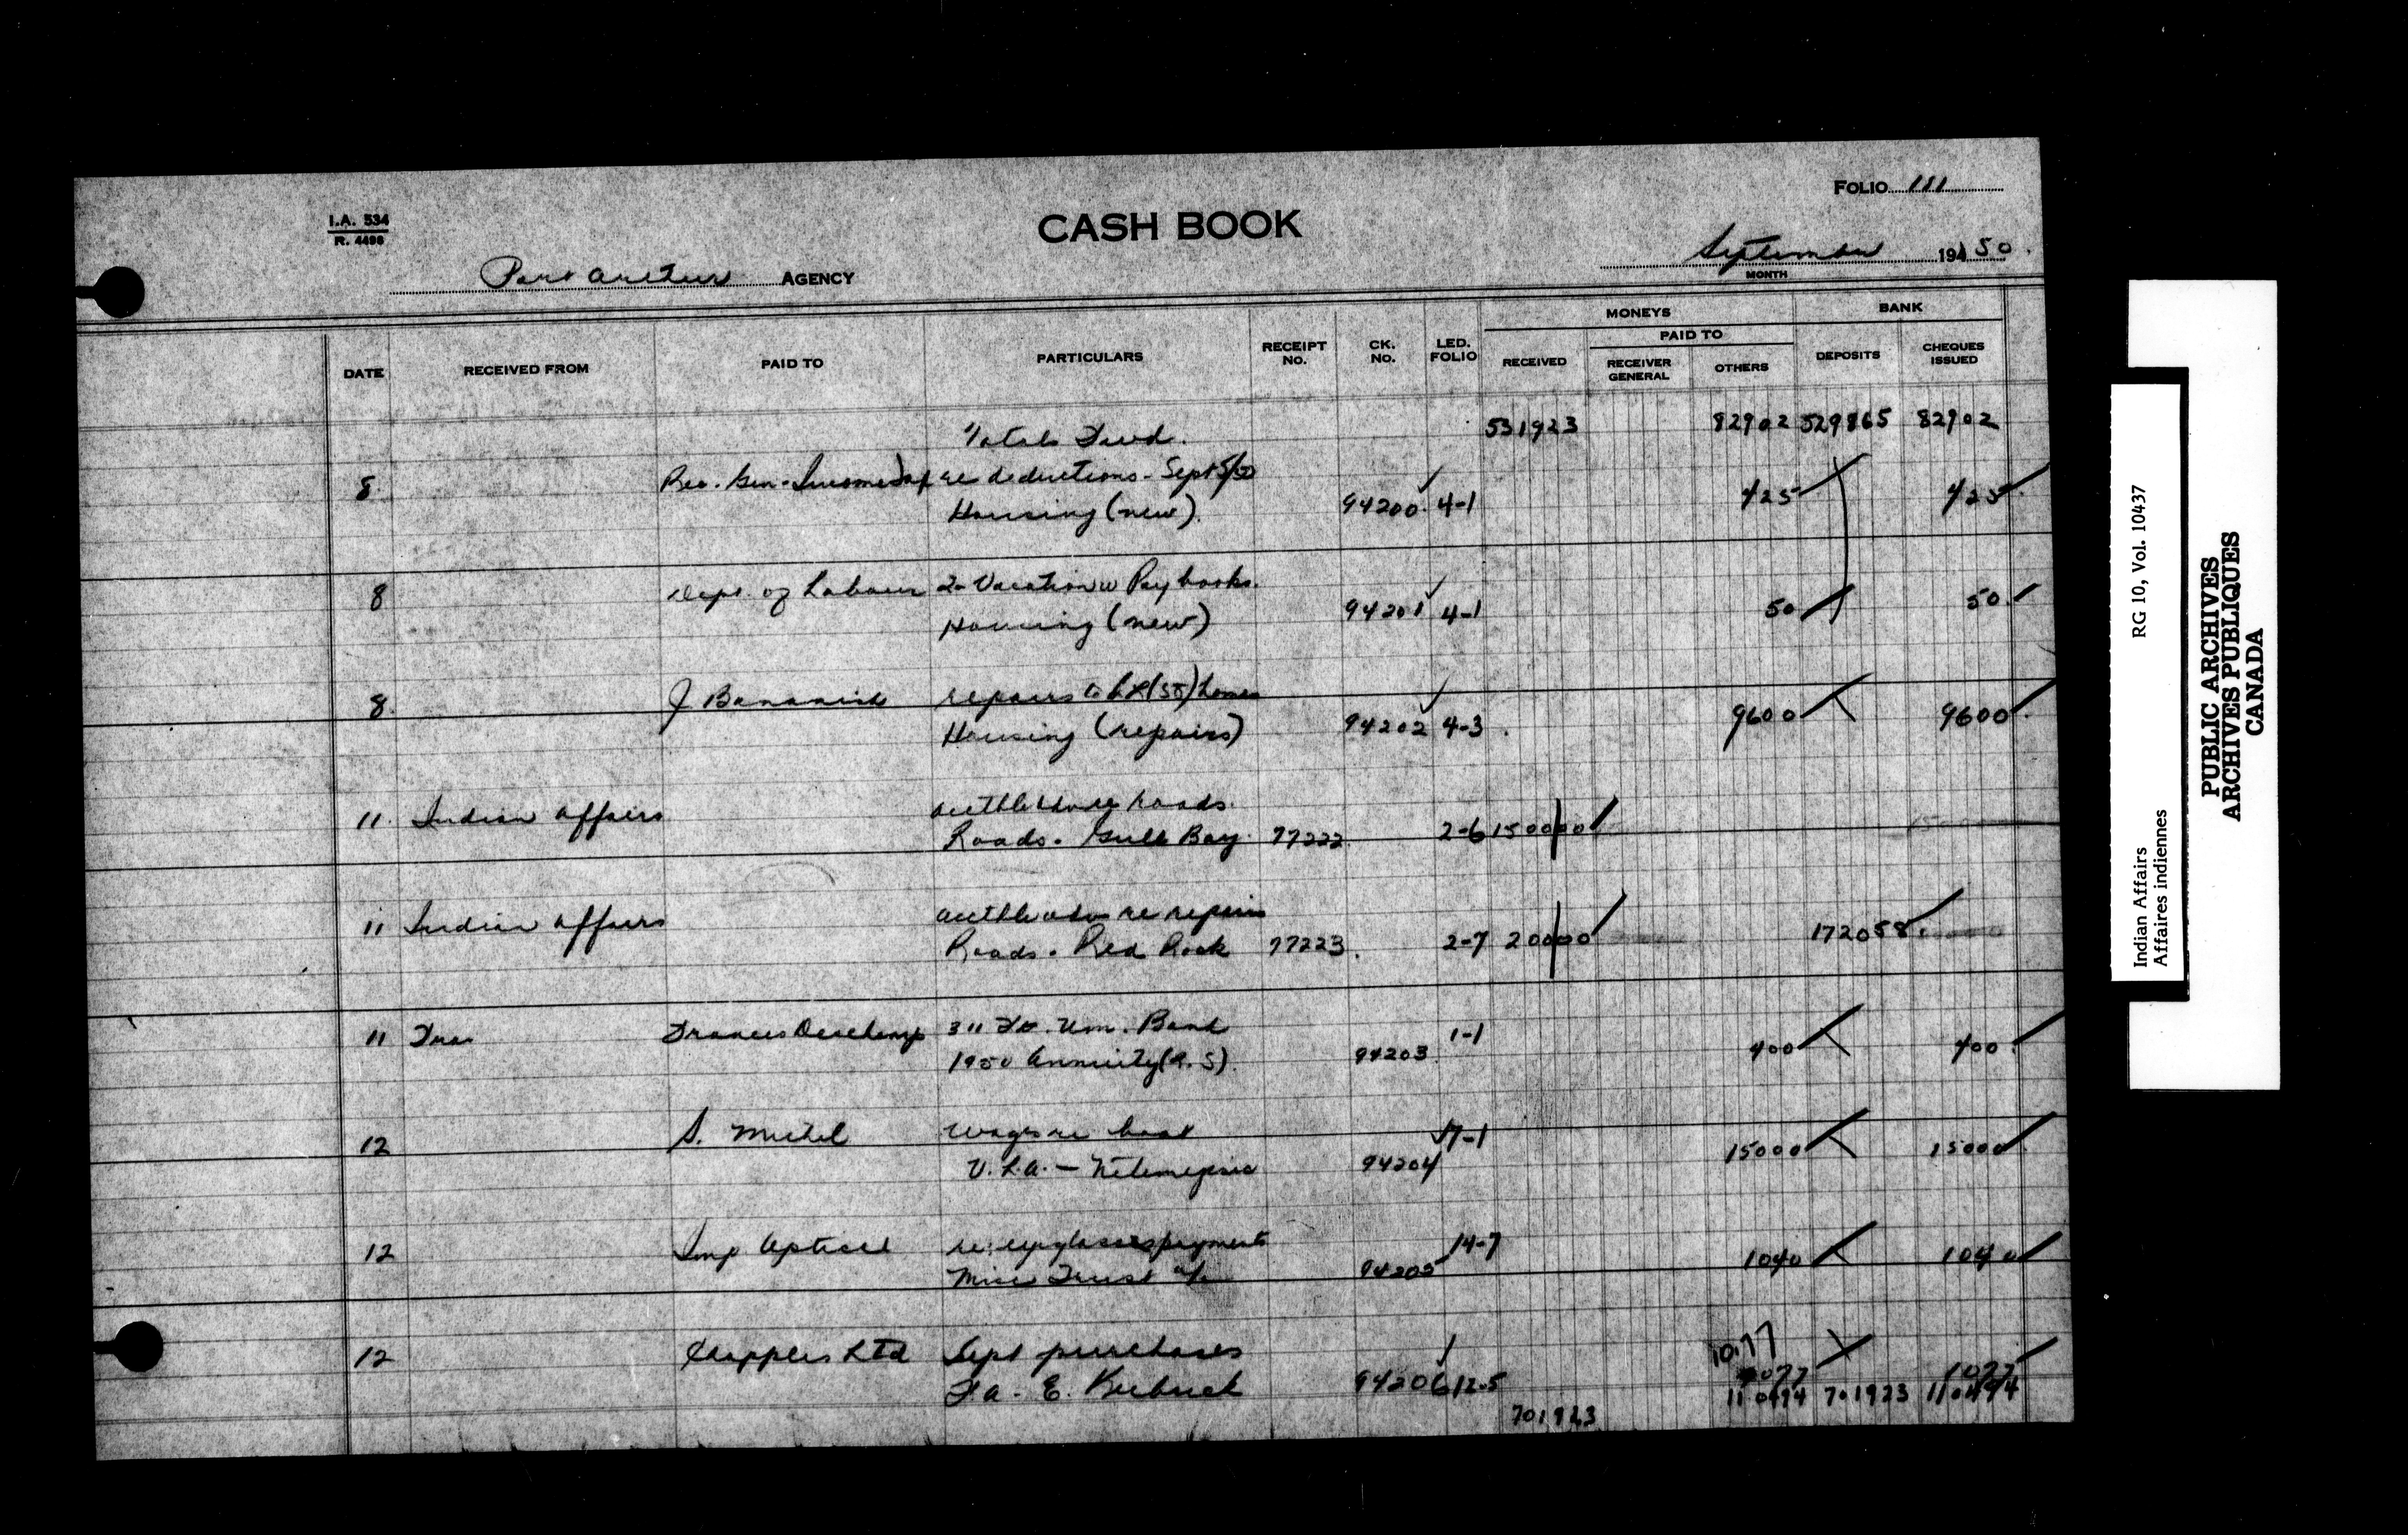 FOLIO 111
I.A. 534
R. 4498
CASH BOOK
Port Arthur AGENCY
September 194 50
MONTH
MONEYS BANK
PAID TO
DATE RECEIVED FROM PAID TO PARTICULARS RECEIPT No. CK. No. LED. FOLIO RECEIVED RECEIVER GENERAL OTHERS DEPOSITS CHEQUES ISSUED
Totals Fwd. 531923 82902 529865 82902
8 Rec. Gen - Income Tax re deductions - Sept 5/50
Housing (new) 94200 4-1 425 425
8 Dept. of Labour 2 Vacation w Pay books.
Housing (new) 94201 4-1 50 50
8 J. Bananish repairs to homes
Housing (repairs) 94202 4-3 9600 9600
11 Indian Affairs roads.
Roads. Gull Bay 77222 2-6 150000
11 Indian Affairs re repairs
Roads. Red Rock 77223 2-7 20000 172058
11 Frances Deschamp 311 Ft. Wm. Band 1-1
1950 Annuity 94203 400 400
12 S. Michel wages re boat 7-1
94204 15000 15000
12 Imp Optical re: eyeglasses payments 14-7
Misc Trust a/c 94205 1040 1040
12 Chapples Ltd Sept purchases 10.77
F a - E. 94206 12-5 1077 1077
701923 110494 701923 110494
Indian Affairs RG 10, Vol. 10437
Affaires indiennes
PUBLIC ARCHIVES
ARCHIVES PUBLIQUES
CANADA